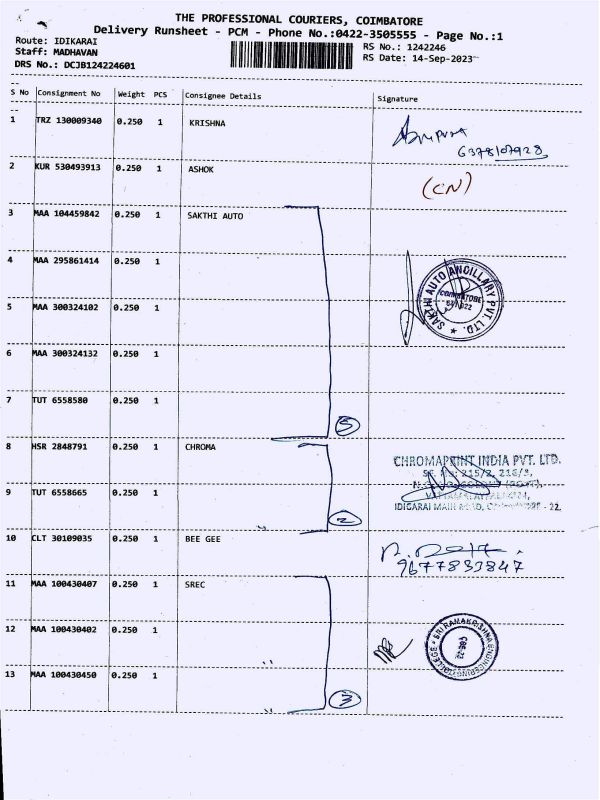 THE PROFESSIONAL COURIERS, COIMBATORE
Delivery Runsheet - PCM - Phone No.:0422-3505555 - Page No.:1
Route: IDIKARAI
RS No.: 1242246
Staff: MADHAVAN
RS Date: 14-Sep-2023
DRS No.: DCJB124224601
S No Consignment No Weight PCS Consignee Details Signature
1 TRZ 130009340 0.250 1 KRISHNA
6378107928
2 KUR 530493913 0.250 1 ASHOK
(CN)
3 MAA 104459842 0.250 1 SAKTHI AUTO
4 MAA 295861414 0.250 1
SAKTHI AUTO ANCILLARY PVT. LTD.
COIMBATORE
5 MAA 300324102 0.250 1
6 MAA 300324132 0.250 1
7 TUT 6558580 0.250 1
5
8 HSR 2848791 0.250 1 CHROMA
CHROMAPRINT INDIA PVT. LTD.
9 TUT 6558665 0.250 1 ,,
IDIGARAI MAIN ROAD,
2
10 CLT 30109035 0.250 1 BEE GEE
9677833847
11 MAA 100430407 0.250 1 SREC
12 MAA 100430402 0.250 1 ,,
SRI RAMAKRISHNA ENGINEERING COLLEGE
13 MAA 100430450 0.250 1 ,,
3